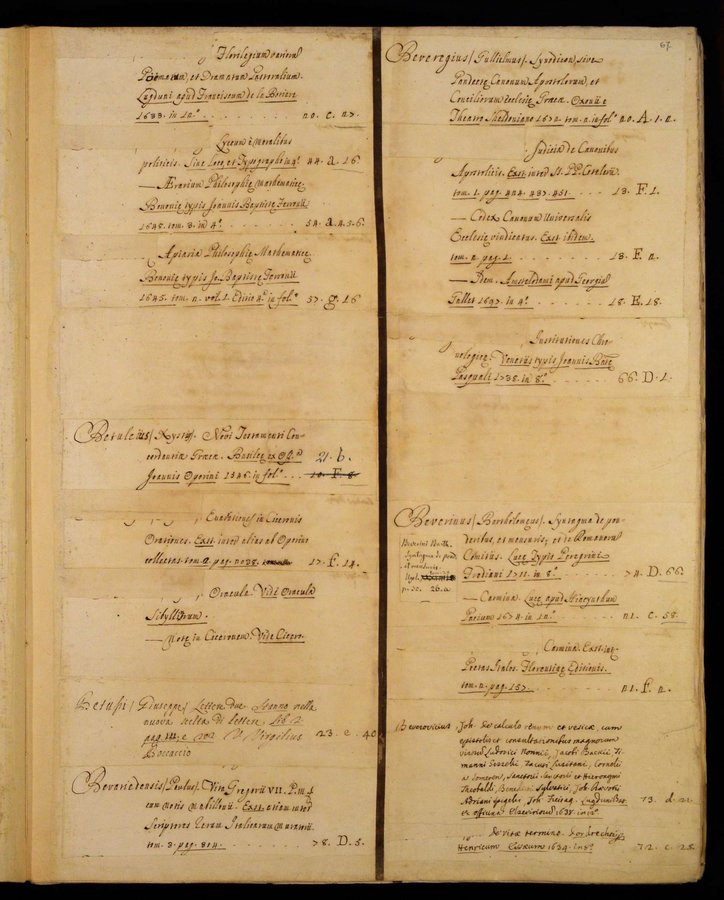 Florilegium variorum
Poematum, et Dramatum Pastoralium.
Lugduni apud Franciscum de la Botiere
1633. in 12.º . . . n. c. 27.
Lyceum è moralibus
politicis. Sine loco et Typographo in 4º 44. a. 16
— Ærarium Philosophiæ Mathematicæ.
Bononiæ typis Joannis Baptistæ Ferronii
1648. tom. 3. in 4.º . . . 54. a. 4.5.6.
Apiaria Philosophiæ Mathematicæ.
Bononiæ typis Jo. Baptistæ Ferronii
1645. tom. 2. vol. 1. Editio 4.ª in fol.º 37. g. 16
Betuleius / Xystus /. Novi Testamenti Con-
cordantiæ Græcæ. Basileæ ex Off.ª 21. b.
Joannis Oporini 1546. in fol.º . . . 10. F. 8.
Enarrationes in Ciceronis
Orationes. Ext. inter alias ab Oporino
collectas tom. 2. pag. 2038. 17. F. 14.
Oracula. Vide Oracula
Sibyllarum.
— Notæ in Ciceronem. Vide Cicero.
Betussi / Giuseppe / Lettere due Stanno nella
nuova scelta di lettere lib. 2
pag. 111. e 202 V. Virgilius 23. e. 40
Boccaccio
Bevariedensis / Paulus /. Vita Gregorii VII. P. M.
cum notis Mabillonii. Ext. etiam inter
Scriptores Rerum Italicarum Muratorii.
tom. 3. pag. 314. . . . 78. D. 5.
67.
Beveregius / Gullielmus /. Synodicon, sive
Pandectæ Canonum Apostolorum, et
Conciliorum Ecclesiæ Græcæ. Oxonii e
Theatro Sheldoniano 1672. tom. 2. in fol.º 20. A. 1. 2.
Judicia de Canonibus
Apostolicis. Ext. inter SS. PP. Cotelerii.
tom. 1. pag. 424. 437. 451. . . . 18. F. 1.
— Codex Canonum Universalis
Ecclesiæ vindicatus. Ext. ibidem.
tom. 2. pag. 1. . . . 18. F. 2.
— Item. Amstelodami apud Georgium
Gallet 1697. in 4.º . . . 18. E. 18.
Institutiones Chro-
nologicæ. Venetiis typis Joannis Bapt.æ
Pasquali 1738. in 8.º . . . 66. D. 1.
Beverinus / Bartholomeus /. Syntagma de pon-
deribus, et mensuris; et de Romanorum
Comitiis. Lucæ Typis Peregrini
Frediani 1711. in 8.º . . . 74. D. 66.
Beverini Barth.
Syntagma de pond.
et mensuris.
Lips.
p. 30. 26. a
— Carmina. Lucæ apud Hiacynthum
Pacium 1674. in 12.º . . . 21. C. 58.
Carmina. Ext. int.
Poetas Italos. Florentinæ Editionis.
tom. 2. pag. 157. . . . 21. F. 2.
Beverovicius / Joh. de calculo renum et vesicæ, cum
epistolis et consultationibus magnorum
virorum Ludovici Nonnii, Jacobi Backii, Her-
manni Saxoli, Zacuti Lusitani, Cornelii
a Someren, Sanctorii Sanctorii et Hieronymi
Theobaldi Benedicti Sylvatici, Joh. Ravotii
Adriani Spigelii, Joh. Freitag. Lugduni Bat.
ex officina Elzeviriorum 1638. in 12.º 73. d. 21.
De vitæ termino. Dordrechti
Henricum Essæum 1634. in 8.º 72. c. 28.